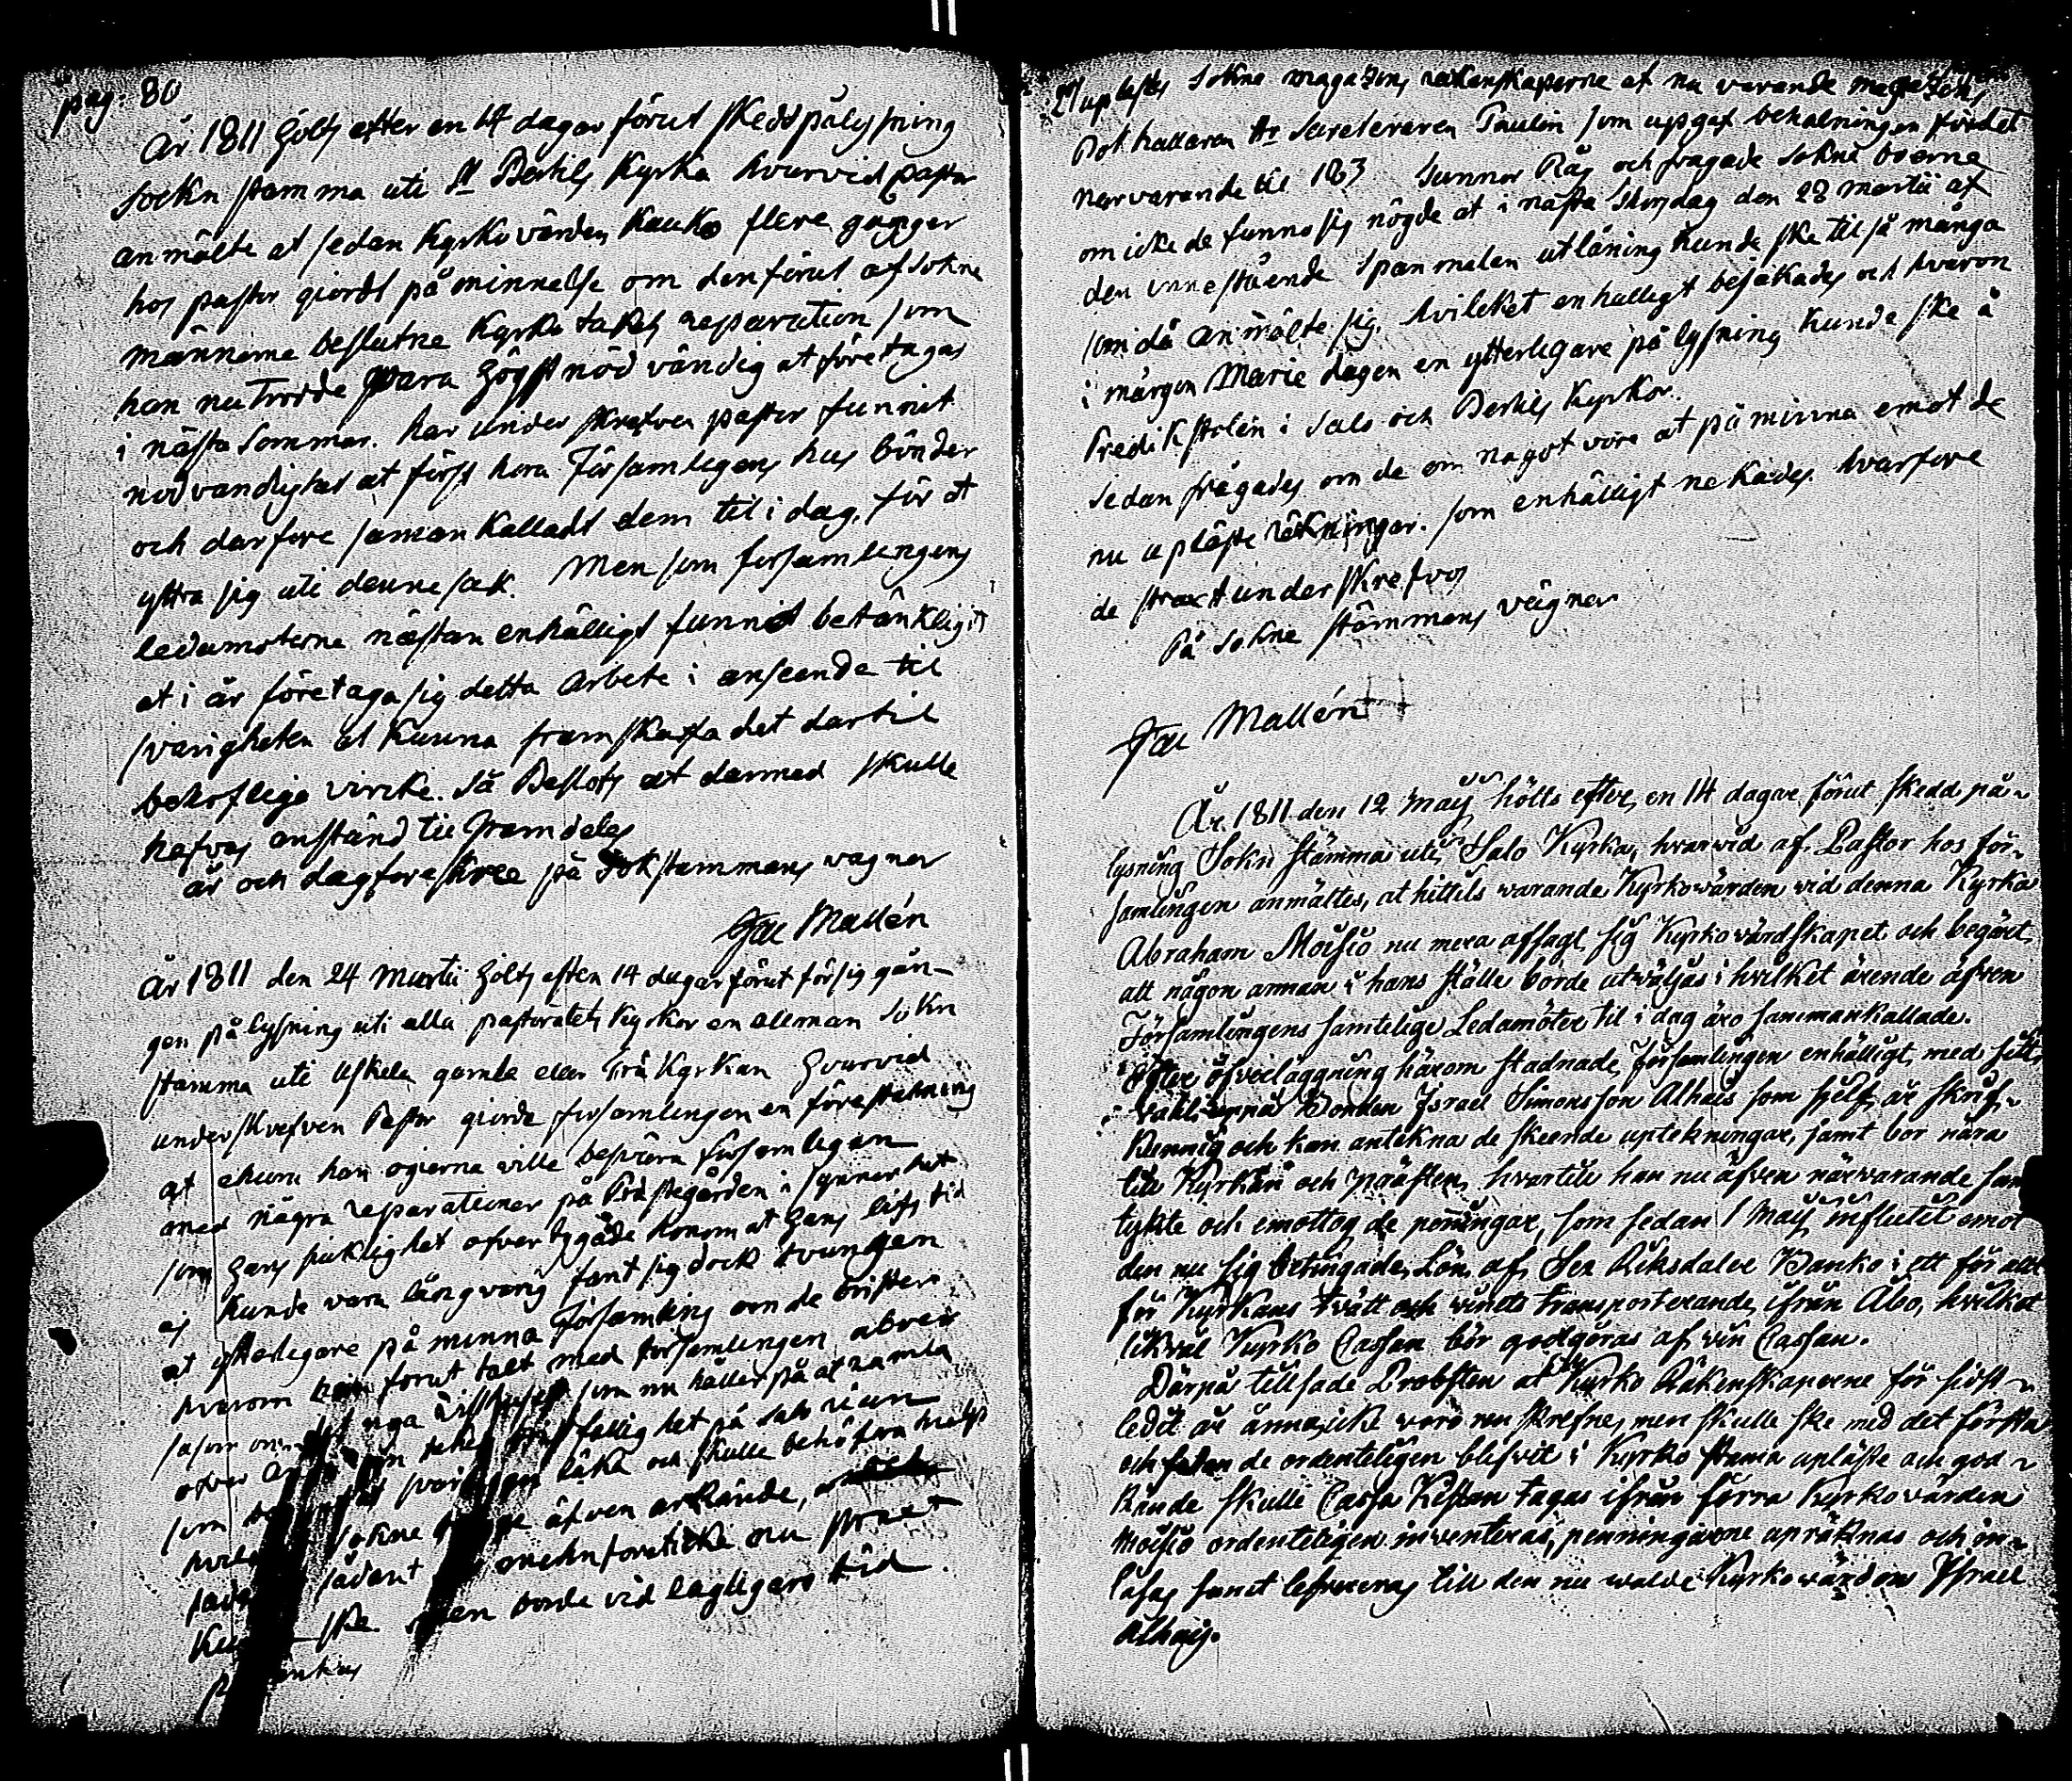 pag: 80
År 1811 Hölts efter en 14 dagar förut skedd pålysning
sockn stamma uti St Bertils Kyrka hvarvid pastor
anmälte at sedan Kyrkovärden Kauko flere gånger
hos pastor giordt påminnelse om den förut af sokne
männerne beslutne Kyrko takets reparation som
han nu trodde vara högst nödvändig at företagas
i nästa Sommar. har underskrefven pastor funnit
nödvändighet at först hora Församlingens hus bönder
och darfore samankalladt dem til i dag, för at
yttra sig uti denne sak. Men som forsamlingens
ledamoterne nästan enhälligt funnit betänkligit
at i år företaga sig detta arbete i anseende til
svårigheten at kunna framskaffa det dartil
behöflige virke. Så Beslöts at darmed skulle
hafvas anstånd til framdeles
år och dag foreskree på Sokstammans vagnar
Mallén
År 1811 den 24 Martii Hölts efter 14 dagar förut försig gån-
gen pålysning uti alla pastoratets Kyrkor en allman Sokn
stamma uti Uskela gamla eller Trä Kyrkan Hvarvid
underskrefven Pastor giorde forsamlingen en föreställning
at ehuru han ogierna ville besvära församlingen
med några reparationer på Prästegården i synnerhet
som Hans siuklighet ofvertygade honom at Hans lifs tid
ej kunde vara långvarig fant sig dock tvungen
at ytterligare på minna Församling om de brister
hvarom han forut talt med församlingen
såsom om
ofver
som
sokne äfven erkände,
sådant nu strax
ske. men borde vid lagligare tid

27 uplästes Sokne magazens räkenskaperne af nu varande magazens
Bok hallaren Hr Secreteraren Paulin som upgaf behalningen för det
narvarande til 183 Tunnor Råg och fragade Sokne boerna
om icke de funno sig nögde at i nästa Thorsdag den 28 martii af
den innestående Spanmålen utlåning kunde ske til så många
som då anmälte sig. hvilcket enhälligt bejakades och hvarom
i mårgon Marie dagen en ytterligare på lysning kunde ske å
Predikstolen i Salo och Bertils Kyrkor.
Sedan frågades om de om något vore at påminna emot de
nu upläste räkningar. som enhälligt nekades. hvarfore
de straxt underskrefvos
På Sokne stämmans vägnar
Mallén
År 1811 den 12 Maij hölts efter en 14 dagar förut skedd på-
lysning Sokn stämma uti Salo Kyrka, hvarvid af Pastor hos för-
samlingen anmältes, at hittils warande Kyrkowärden vid denna Kyrka
Abraham Moisio nu mera afsagt sig Kyrkowärdskapet och begärt,
att någon annan i hans ställe borde utväljas i hvilket ärende äfven
Församlingens samtelige Ledamöter til i dag äro sammankallade.
Efter öfverläggning härom stadnade församlingen enhälligt med sitt
vahl uppå Bonden Israel Simonsson Alhais som sjelf är skrif-
kunnig och kan antekna de skeende uptekningar, samt bor nära
till Kyrkan och prästen, hvartill han nu äfven närvarande sam
tykte och emottog de penningar, som sedan 1 Maij influtit emot
den nu sig betingade Lön af Sex Riksdaler Banko i ett för allt
för Kyrkans tvätt och vinets transporterande ifrån Åbo, hvilket
likväl Kyrko Cassan bör godgöras af vin Cassan.
Därpå tillsade Probsten at Kyrko Räkenskaperne för sidst-
ledit år ännu icke voro nu skrefne, men skulle ske med det första
och sedan de ordenteligen blifvit i Kyrko stämma upläste och god-
kände skulle Cassa Kistan tagas ifrån förra Kyrkovärden
Moisio ordenteligen inventeras, penningarne upräknas och in-
låsas samt lefvereras till den nu valde Kyrkovärden Israel
Alhais.